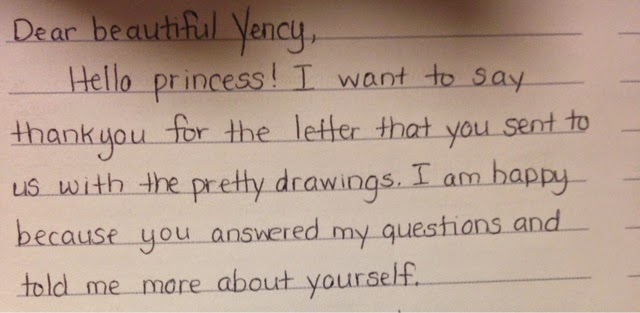 Dear beautiful Yency,
Hello princess! I want to say
thankyou for the letter that you sent to
us with the pretty drawings. I am happy
because you answered my questions and
told me more about yourself.